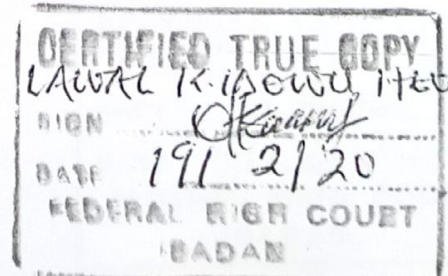 CERTIFIED TRUE COPY
LAWAL K. IDOWU HEO
SIGN
DATE 19/ 2/ 20
FEDERAL HIGH COURT
IBADAN